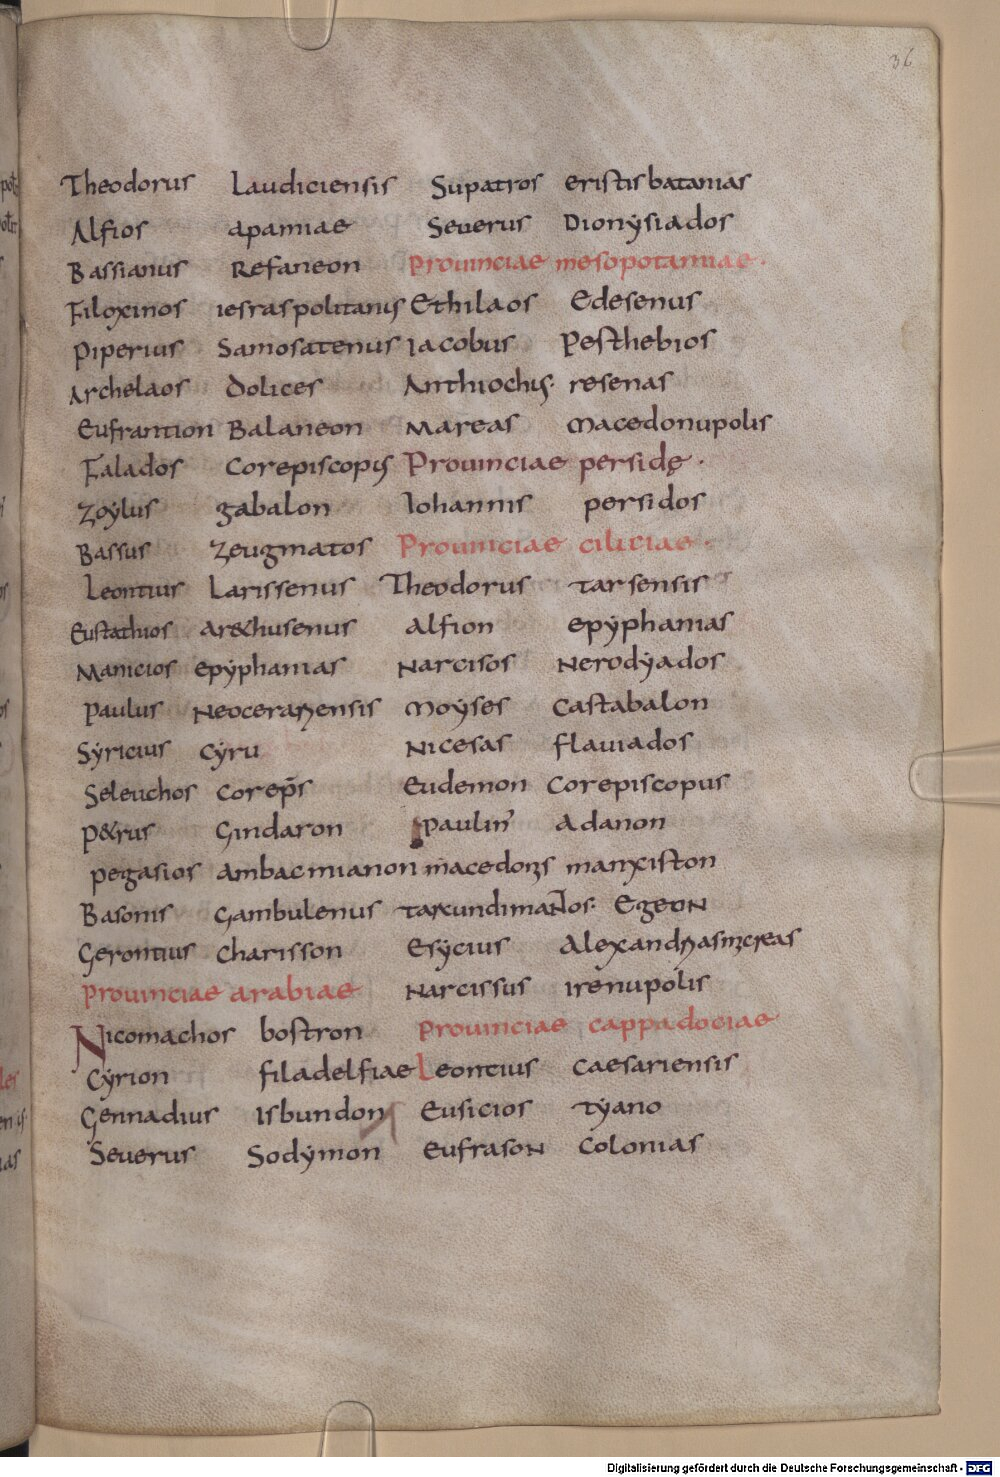 36
Theodorus Laudiciensis
Alfios apamiae
Bassianus Refaneon
Filoxinos iesraspolitanus
Piperius Samosatenus
Archelaos dolices
Eufrantion Balaneon
Falados Corepiscopus
Zoẏlus gabalon
Bassus Zeugmatos
Leontius Larissenus
Eustathios Arethusenus
Manicios epẏphanias
Paulus
Sẏricius Cẏru
Seleuchos Corep̄s
Petrus Gindaron
pegasios ambacmianon
Basonis Gambulenus
Gerontius Charisson
Prouinciae arabiae
Nicomachos bostron
Cẏrion filadelfiae
Gennadius Isbundon
Seuerus Sodẏmon
Supatros eristis batanias
Seuerus Dionẏsiados
Prouinciae mesopotamiae.
Ethilaos Edesenus
Iacobus Pesthebios
Anthiochus. resenas
Mareas Macedonupolis
Prouinciae persidę.
Iohannis persidos
Prouinciae ciliciae.
Theodorus tarsensis
Alfion epẏphanias
Narcisos Nerodẏados
Moẏses Castabalon
Nicesas flauiados
Eudemon Corepiscopus
Paulin' Adanon
Egeon
Esẏcius
Narcissus irenupolis
Prouinciae cappadociae
Leontius Caesariensis
Eusicios tẏano
Eufrason Colonias
Digitalisierung gefördert durch die Deutsche Forschungsgemeinschaft - DFG